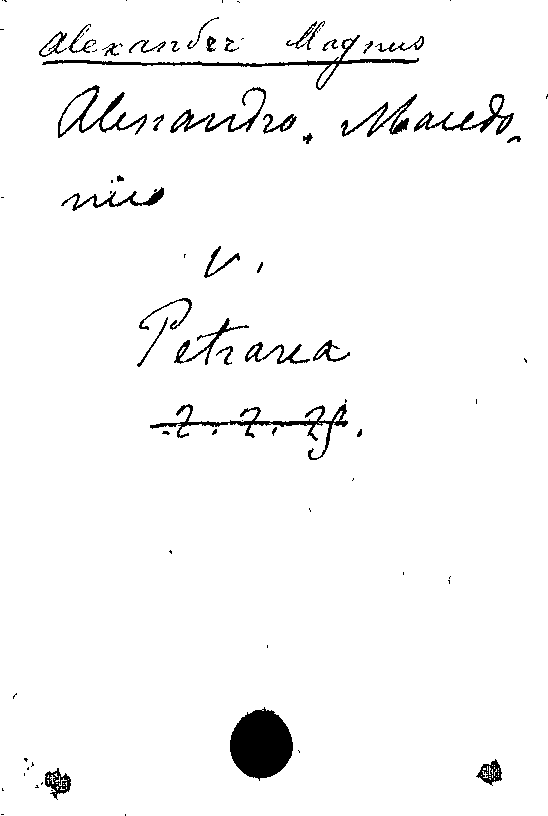 Alexander Magnus
Alessandro. Macedo-
nico
v.
Petrarca